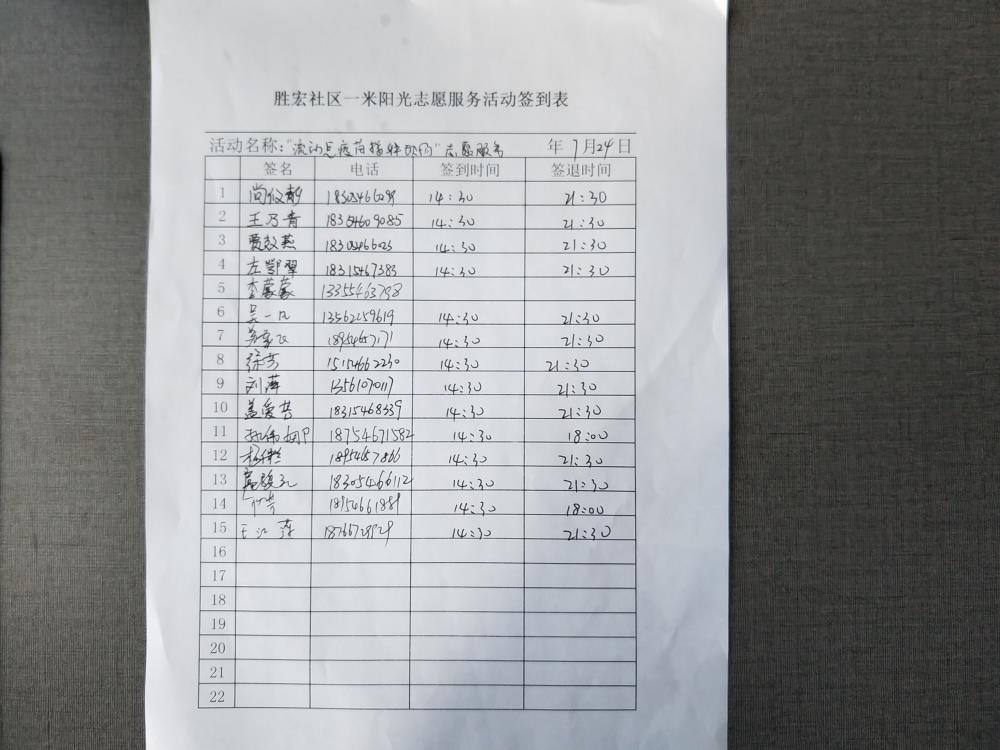 胜宏社区一米阳光志愿服务活动签到表
活动名称："疫苗 志愿服务 年 7月24日
签名 电话 签到时间 签退时间
1 14:30 21:30
2 王乃青 18354609085 14:30 21:30
3 14:30 21:30
4 左鄂翠 18315467383 14:30 21:30
5 李蒙蒙 13355463798
6 吴一凡 13562259619 14:30 21:30
7 18954657171 14:30 21:30
8 徐芳 15154662230 14:30 21:30
9 刘萍 13561070117 14:30 21:30
10 盖爱芬 18315468339 14:30 21:30
11 18754671582 14:30 18:00
12 18954657866 14:30 21:30
13 18305466112 14:30 21:30
14 18954661889 14:30 18:00
15 王江萍 14:30 21:30
16
17
18
19
20
21
22